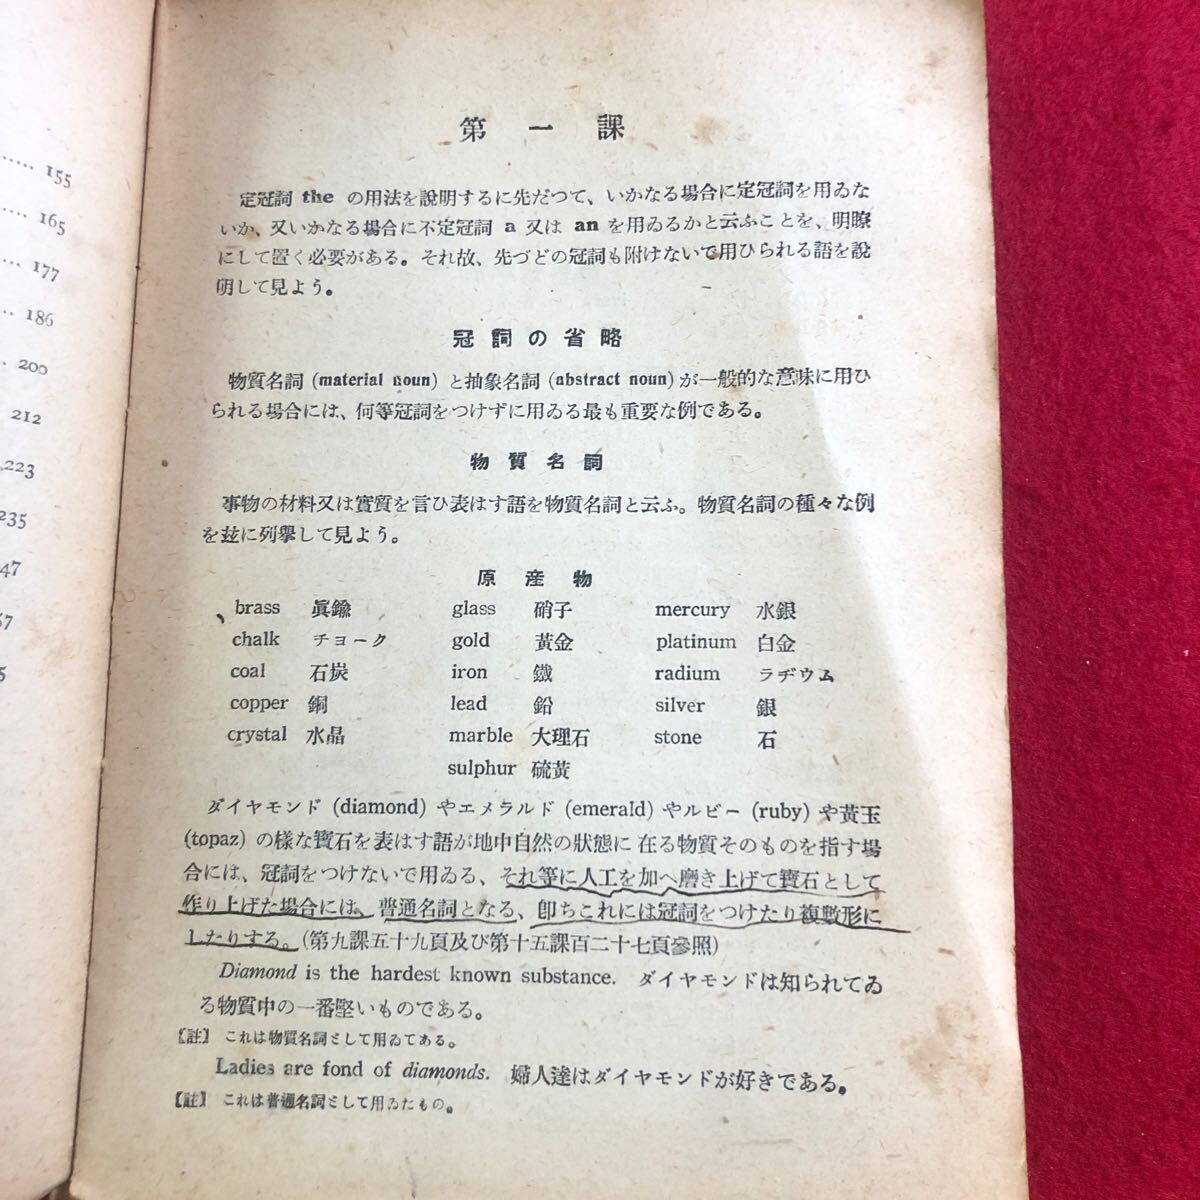 …… 155
…… 165
… 177
… 186
.. 200
. 212
.223
235
47
第一課
定冠詞 the の用法を說明するに先だつて、いかなる場合に定冠詞を用ゐな
いか、又いかなる場合に不定冠詞 a 又は an を用ゐるかと云ふことを、明瞭
にして置く必要がある。それ故、先づどの冠詞も附けないで用ひられる語を說
明して見よう。
冠詞の省略
物質名詞 (material noun) と抽象名詞 (abstract noun) が一般的な意味に用ひ
られる場合には、何等冠詞をつけずに用ゐる最も重要な例である。
物質名詞
事物の材料又は實質を言ひ表はす語を物質名詞と云ふ。物質名詞の種々な例
を玆に列擧して見よう。
原産物
brass 眞鍮 glass 硝子 mercury 水銀
chalk チョーク gold 黃金 platinum 白金
coal 石炭 iron 鐵 radium ラヂウム
copper 銅 lead 鉛 silver 銀
crystal 水晶 marble 大理石 stone 石
sulphur 硫黃
ダイヤモンド (diamond) やエメラルド (emerald) やルビー (ruby) や黃玉
(topaz) の樣な寶石を表はす語が地中自然の狀態に在る物質そのものを指す場
合には、冠詞をつけないで用ゐる、それ等に人工を加へ磨き上げて寶石として
作り上げた場合には、普通名詞となる、卽ちこれには冠詞をつけたり複數形に
したりする。(第九課五十九頁及び第十五課百二十七頁參照)
Diamond is the hardest known substance. ダイヤモンドは知られてゐ
る物質中の一番堅いものである。
【註】 これは物質名詞として用ゐてある。
Ladies are fond of diamonds. 婦人達はダイヤモンドが好きである。
【註】 これは普通名詞として用ゐたもの。